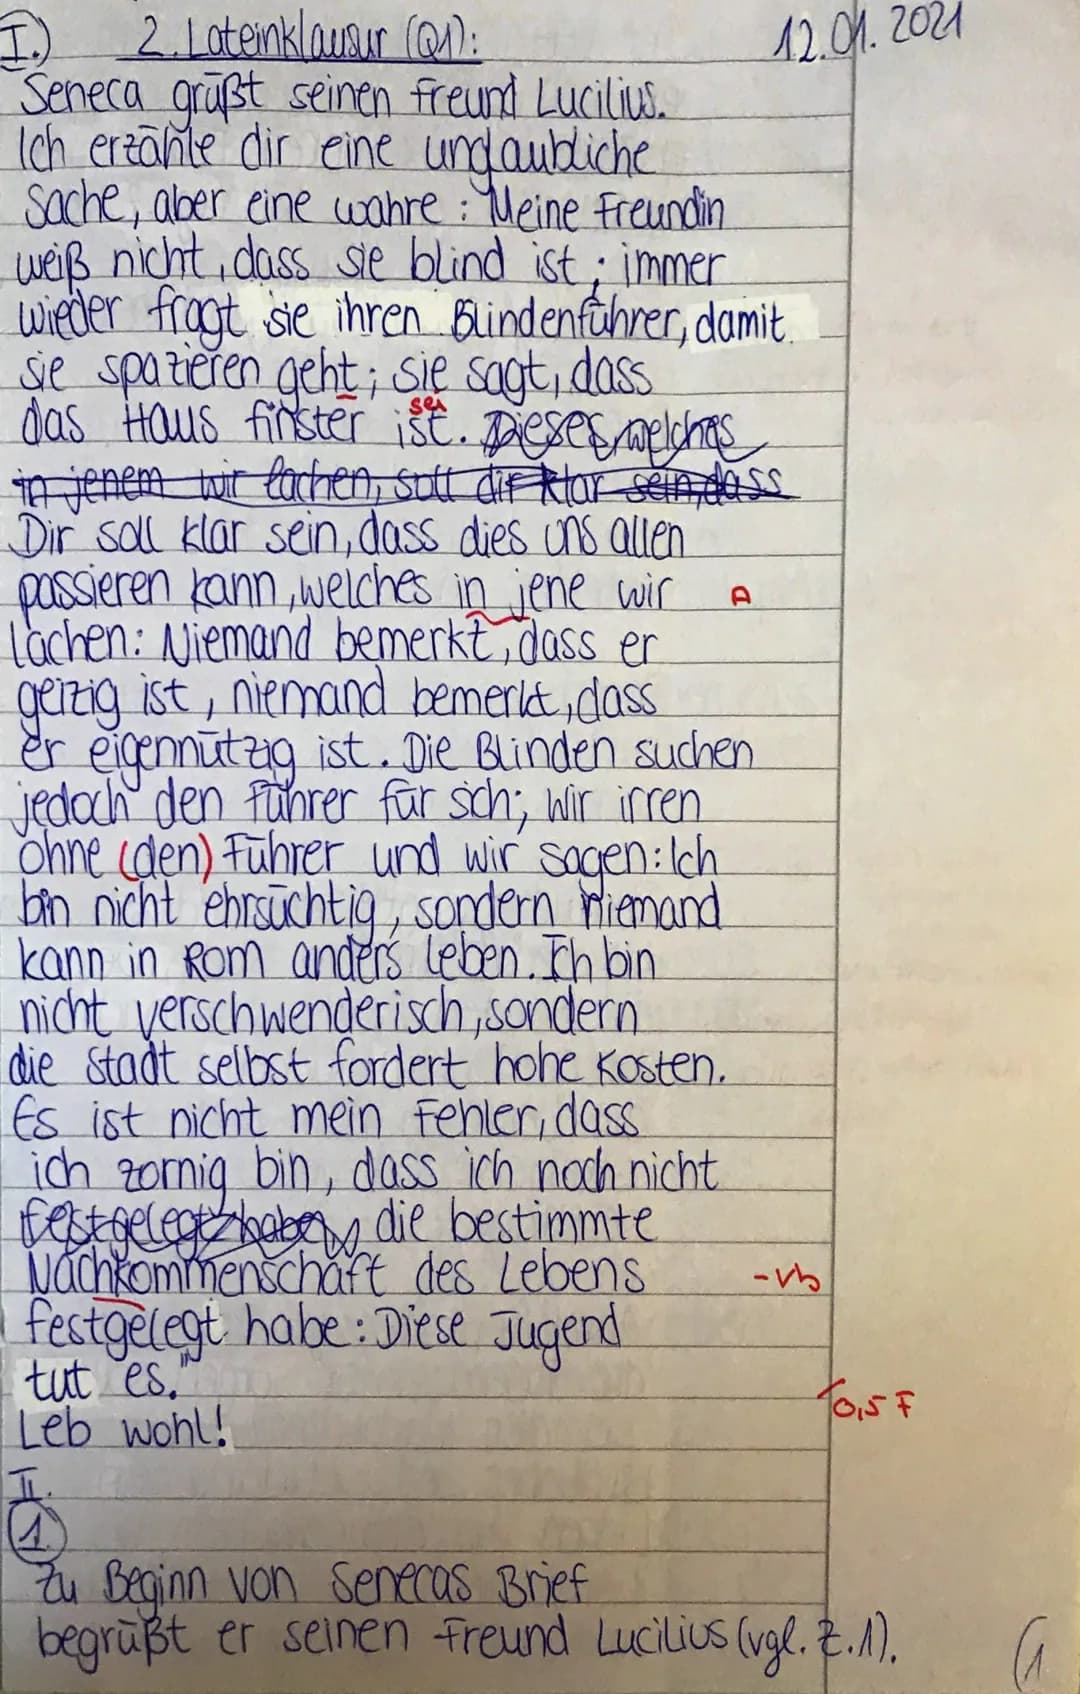 I.) 2. Lateinklausur (Q1): 12.01.2021
Seneca grüßt seinen Freund Lucilius.
Ich erzähle dir eine unglaubliche
Sache, aber eine wahre: Meine Freundin
weiß nicht, dass sie blind ist; immer
wieder fragt sie ihren Blindenführer, damit
sie spazieren geht; sie sagt, dass
sei
das Haus finster ist. Dieses, welches
in jenem wir lachen, soll dir klar sein, dass
Dir soll klar sein, dass dies uns allen
passieren kann, welches in jene wir A
lachen: Niemand bemerkt, dass er
geizig ist, niemand bemerkt, dass
er eigennützig ist. Die Blinden suchen
jedoch den Führer für sich; wir irren
ohne (den) Führer und wir sagen: Ich
bin nicht ehrsüchtig, sondern niemand
kann in Rom anders leben. Ich bin
nicht verschwenderisch, sondern
die Stadt selbst fordert hohe Kosten.
Es ist nicht mein Fehler, dass
ich zornig bin, dass ich noch nicht
festgelegt habe, die bestimmte
Nachkommenschaft des Lebens -vb
festgelegt habe: Diese Jugend
tut es."
0,5 F
Leb wohl!
II.
1.
Zu Beginn von Senecas Brief
begrüßt er seinen Freund Lucilius (vgl. Z.1).
1